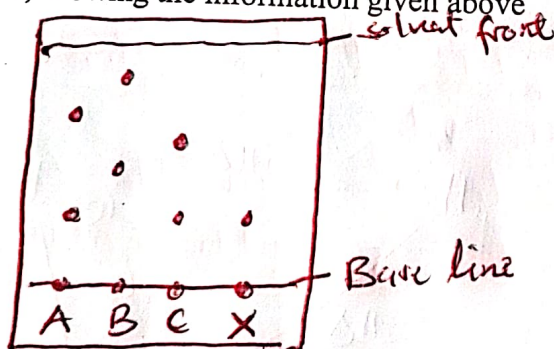 owing the information given above
solvent front
Base line
A B C X